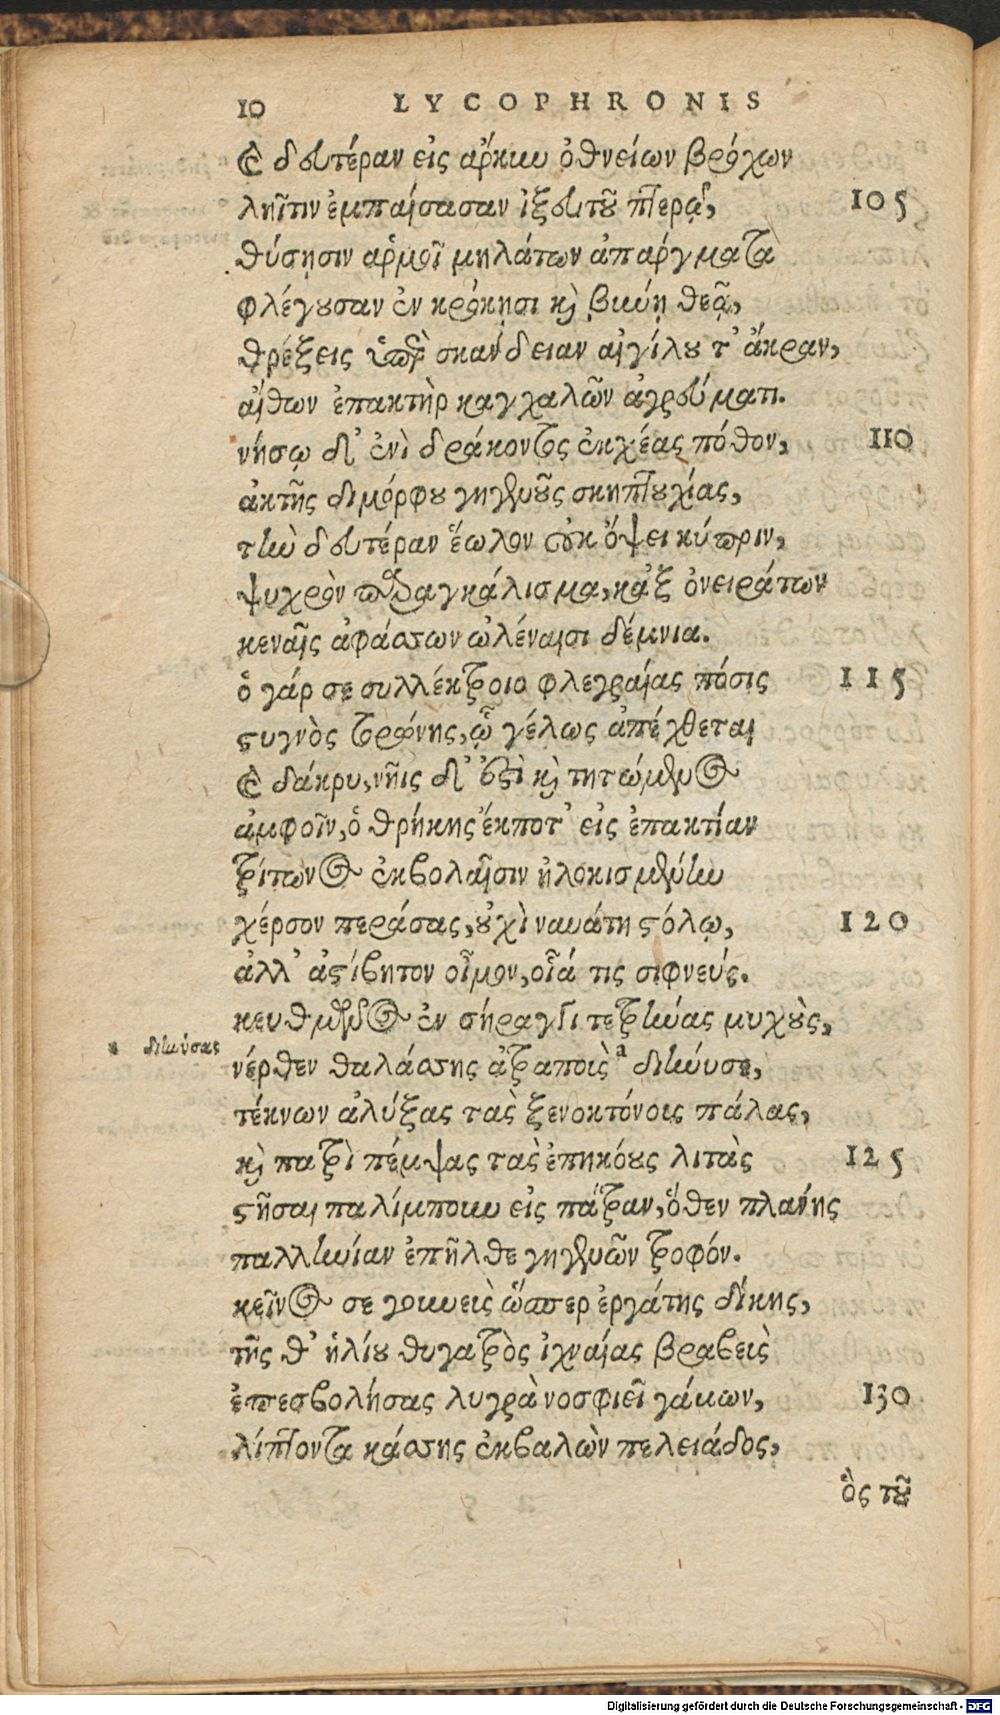 10 LYCOPHRONIS
καὶ δευτέραν εἰς ἄρκυν ὀθνείων βρόχων
ληῖτιν ἐμπαίσασαν ἰξευτοῦ πτερᾷ, 105
θύσῃσιν ἁρμοῖ μηλάτων ἀπάργματα
φλέγουσαν ἐν κρόκῃσι καὶ βύνῃ θεᾷ,
θρέξεις ὑπὲρ σκάνδειαν αἰγίλου τ' ἄκραν,
αἴθων ἐπακτὴρ καγχαλῶν ἀγρεύματι.
νήσῳ δ' ἐνὶ δράκοντος ἐκχέας πόθον, 110
ἀκτῆς διμόρφου γηγενοῦς σκηπτουχίας,
τὴν δευτέραν ἕωλον οὐκ ὄψει κύπριν,
ψυχρὸν παραγκάλισμα, κἀξ ὀνειράτων
κεναῖς ἀφάσσων ὠλέναισι δέμνια.
ὁ γάρ σε συλλέκτροιο φλεγραίας πόσις 115
στυγνὸς τορώνης, ᾧ γέλως ἀπέχθεται
καὶ δάκρυ, νῆις δ' ἐστὶ καὶ τητώμενος
ἀμφοῖν, ὁ θρήκης ἔκ ποτ' εἰς ἐπακτίαν
τρίτωνος ἐκβολαῖσιν ἠλοκισμένην
χέρσον περάσας, οὐχὶ ναυάτῃ στόλῳ, 120
ἀλλ' ἀστίβητον οἶμον, οἷά τις σιφνεύς.
κευθμῶνος ἐν σήραγγι τετρήνας μυχοὺς,
διηνύσας
νέρθεν θαλάσσης ἀτραποὺς a διήνυσε,
τέκνων ἀλύξας τὰς ξενοκτόνους πάλας,
καὶ πατρὶ πέμψας τὰς ἐπηκόους λιτὰς 125
στῆσαι παλίμπουν εἰς πάτραν, ὅθεν πλανής
παλληνίαν ἐπῆλθε γηγενῶν τροφόν.
κεῖνος σε γουνεὺς ὥσπερ ἐργάτης δίκης,
τῆς θ' ἡλίου θυγατρὸς ἰχναίας βραβεὺς
ἐπεσβολήσας λυγρὰ νοσφιεῖ γάμων, 130
λίπτοντα κάσσης ἐκβαλὼν πελειάδος,
ὃς τοῦ
Digitalisierung gefördert durch die Deutsche Forschungsgemeinschaft - DFG